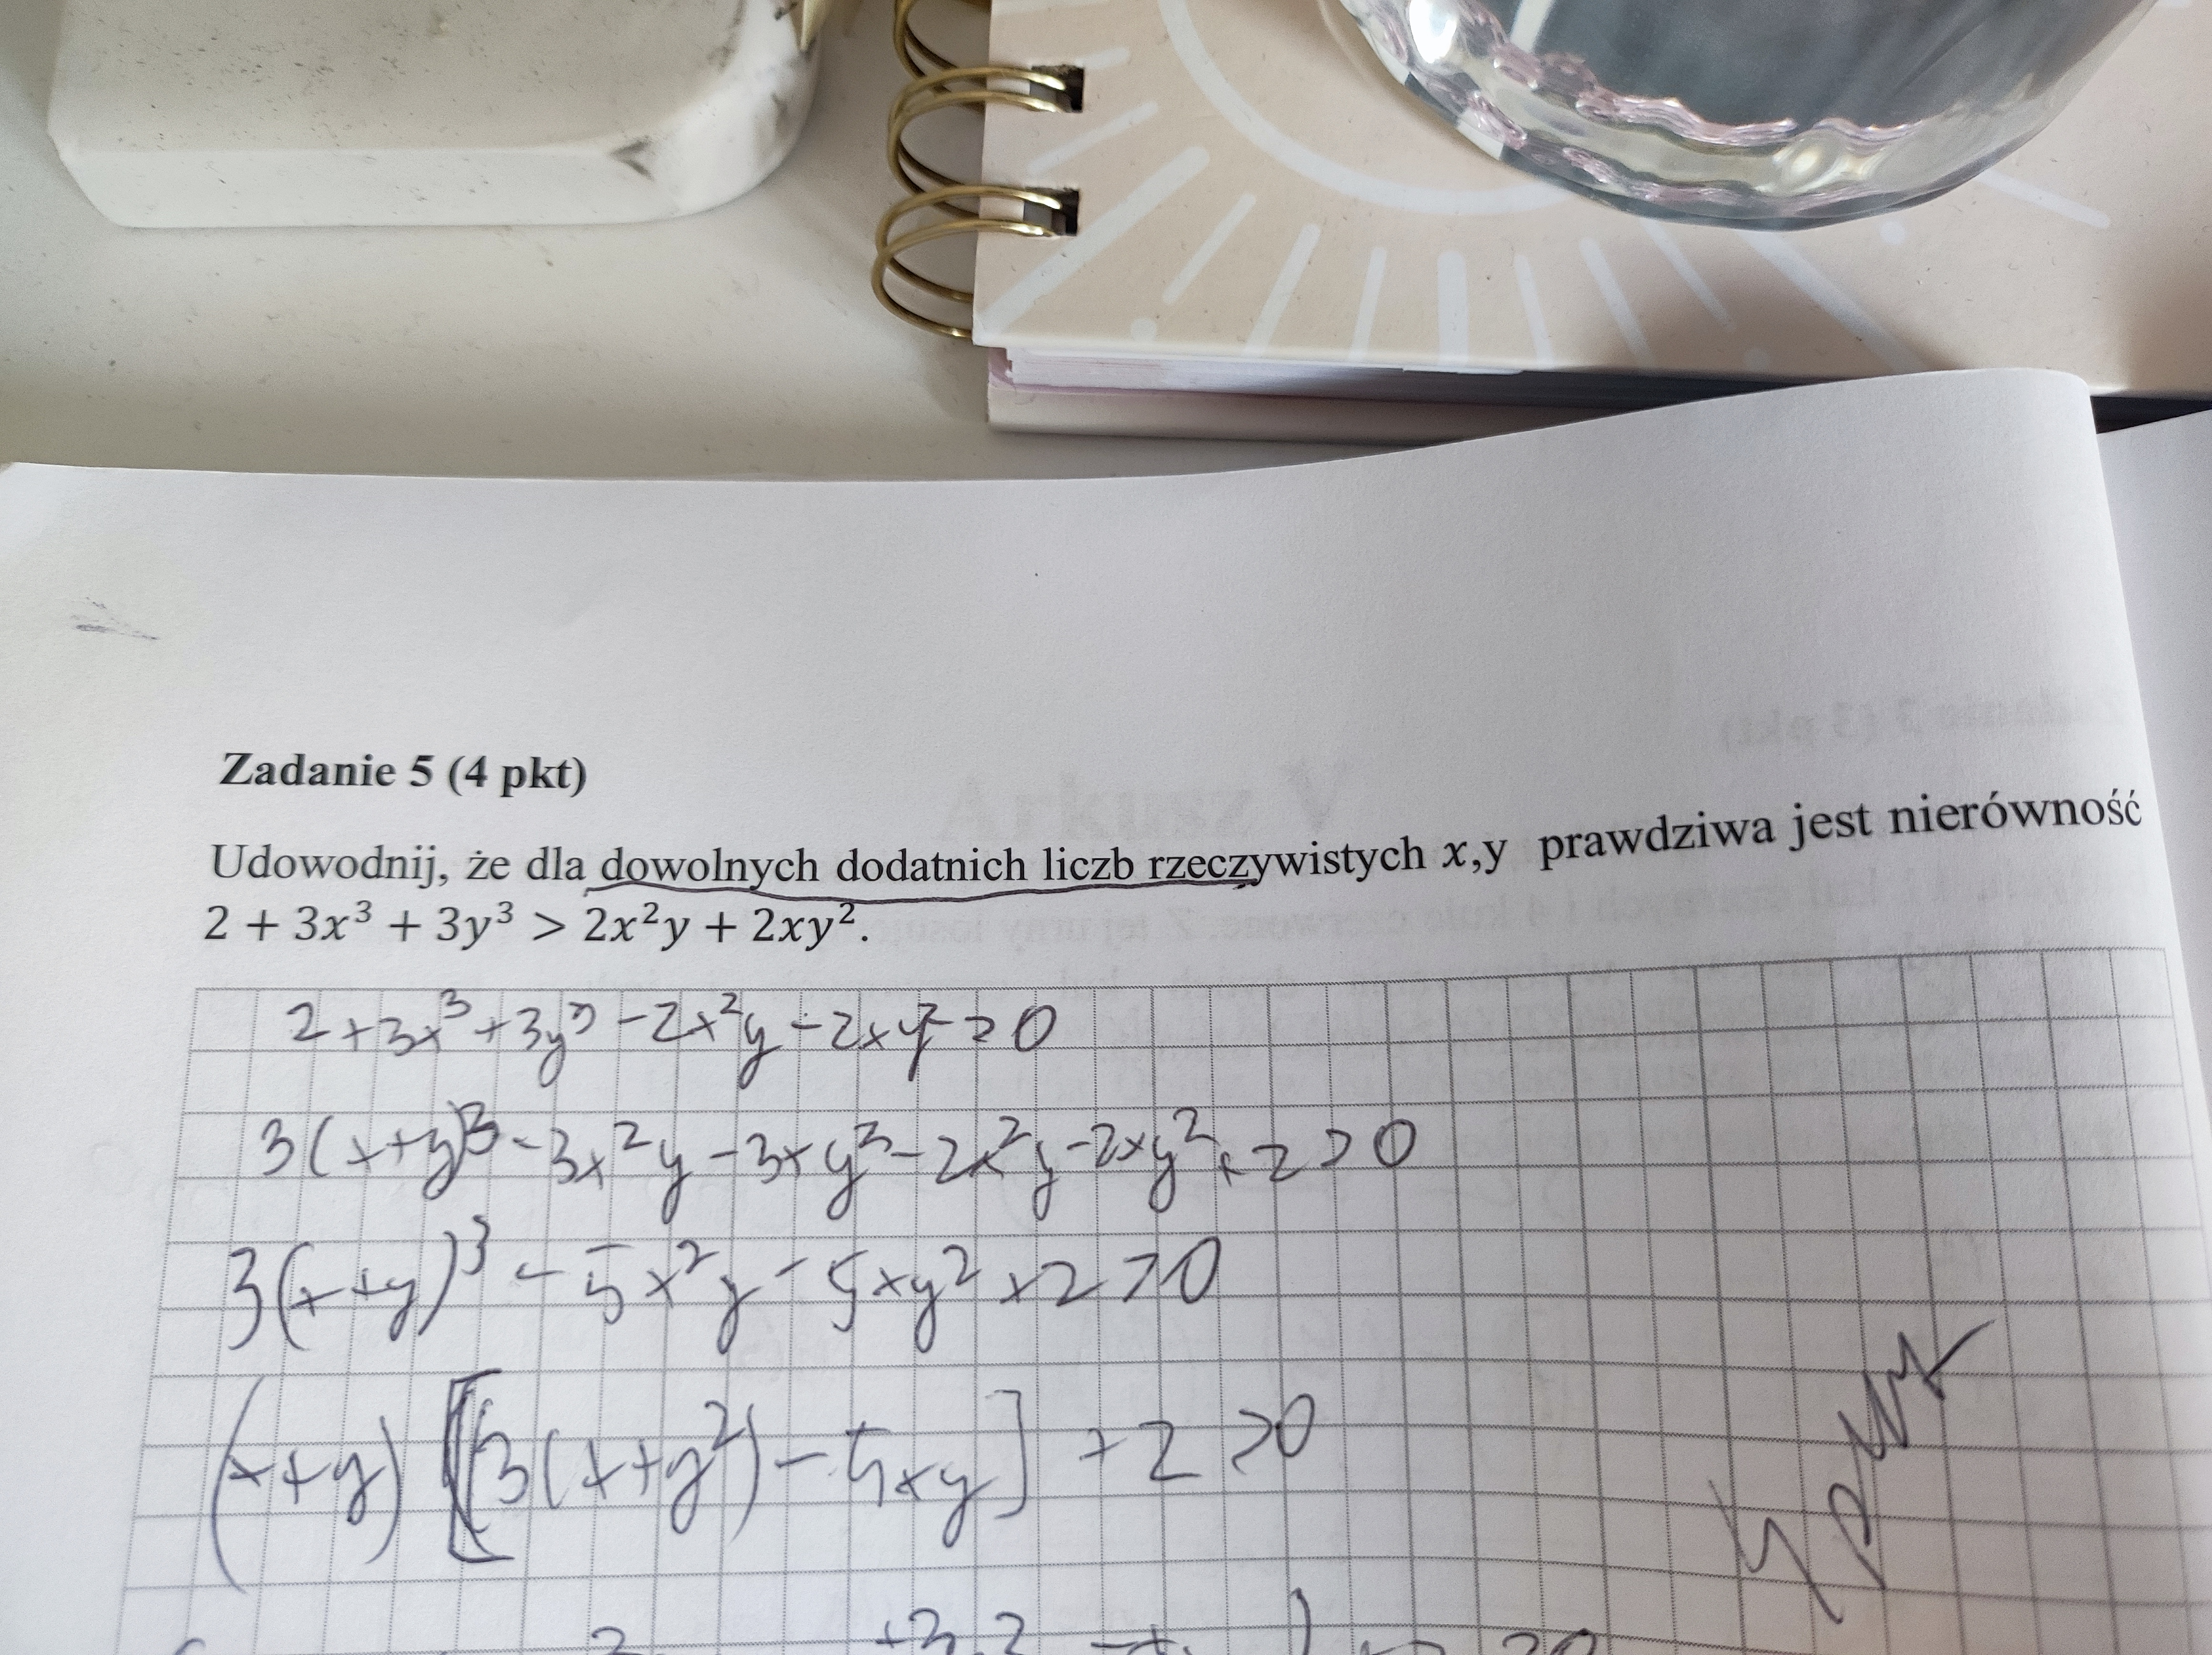 Zadanie 5 (4 pkt)
Udowodnij, że dla dowolnych dodatnich liczb rzeczywistych x,y prawdziwa jest nierówność
2 + 3x³ + 3y³ > 2x²y + 2xy².
2+3x³+3y³-2x²y-2xy²>0
3(x+y)³-3x²y-3xy²-2x²y-2xy²+2>0
3(x+y)³-5x²y-5xy²+2>0
(x+y)[3(x+y²)-5xy]+2>0
4 pkt